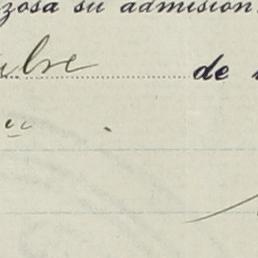 zosa su admisión
ubre de